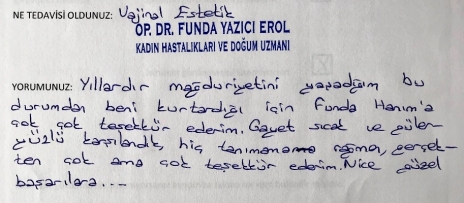 NE TEDAVİSİ OLDUNUZ: Vajinal Estetik
OP. DR. FUNDA YAZICI EROL
KADIN HASTALIKLARI VE DOĞUM UZMANI
YORUMUNUZ: Yıllardır mağduriyetini yaşadığım bu
durumdan beni kurtardığı için Funda Hanım'a
çok çok teşekkür ederim. Gayet sıcak ve güler
yüzlü karşılandık, hiç tanımamama rağmen, gerçek-
ten çok ama çok teşekkür ederim. Nice güzel
başarılara...